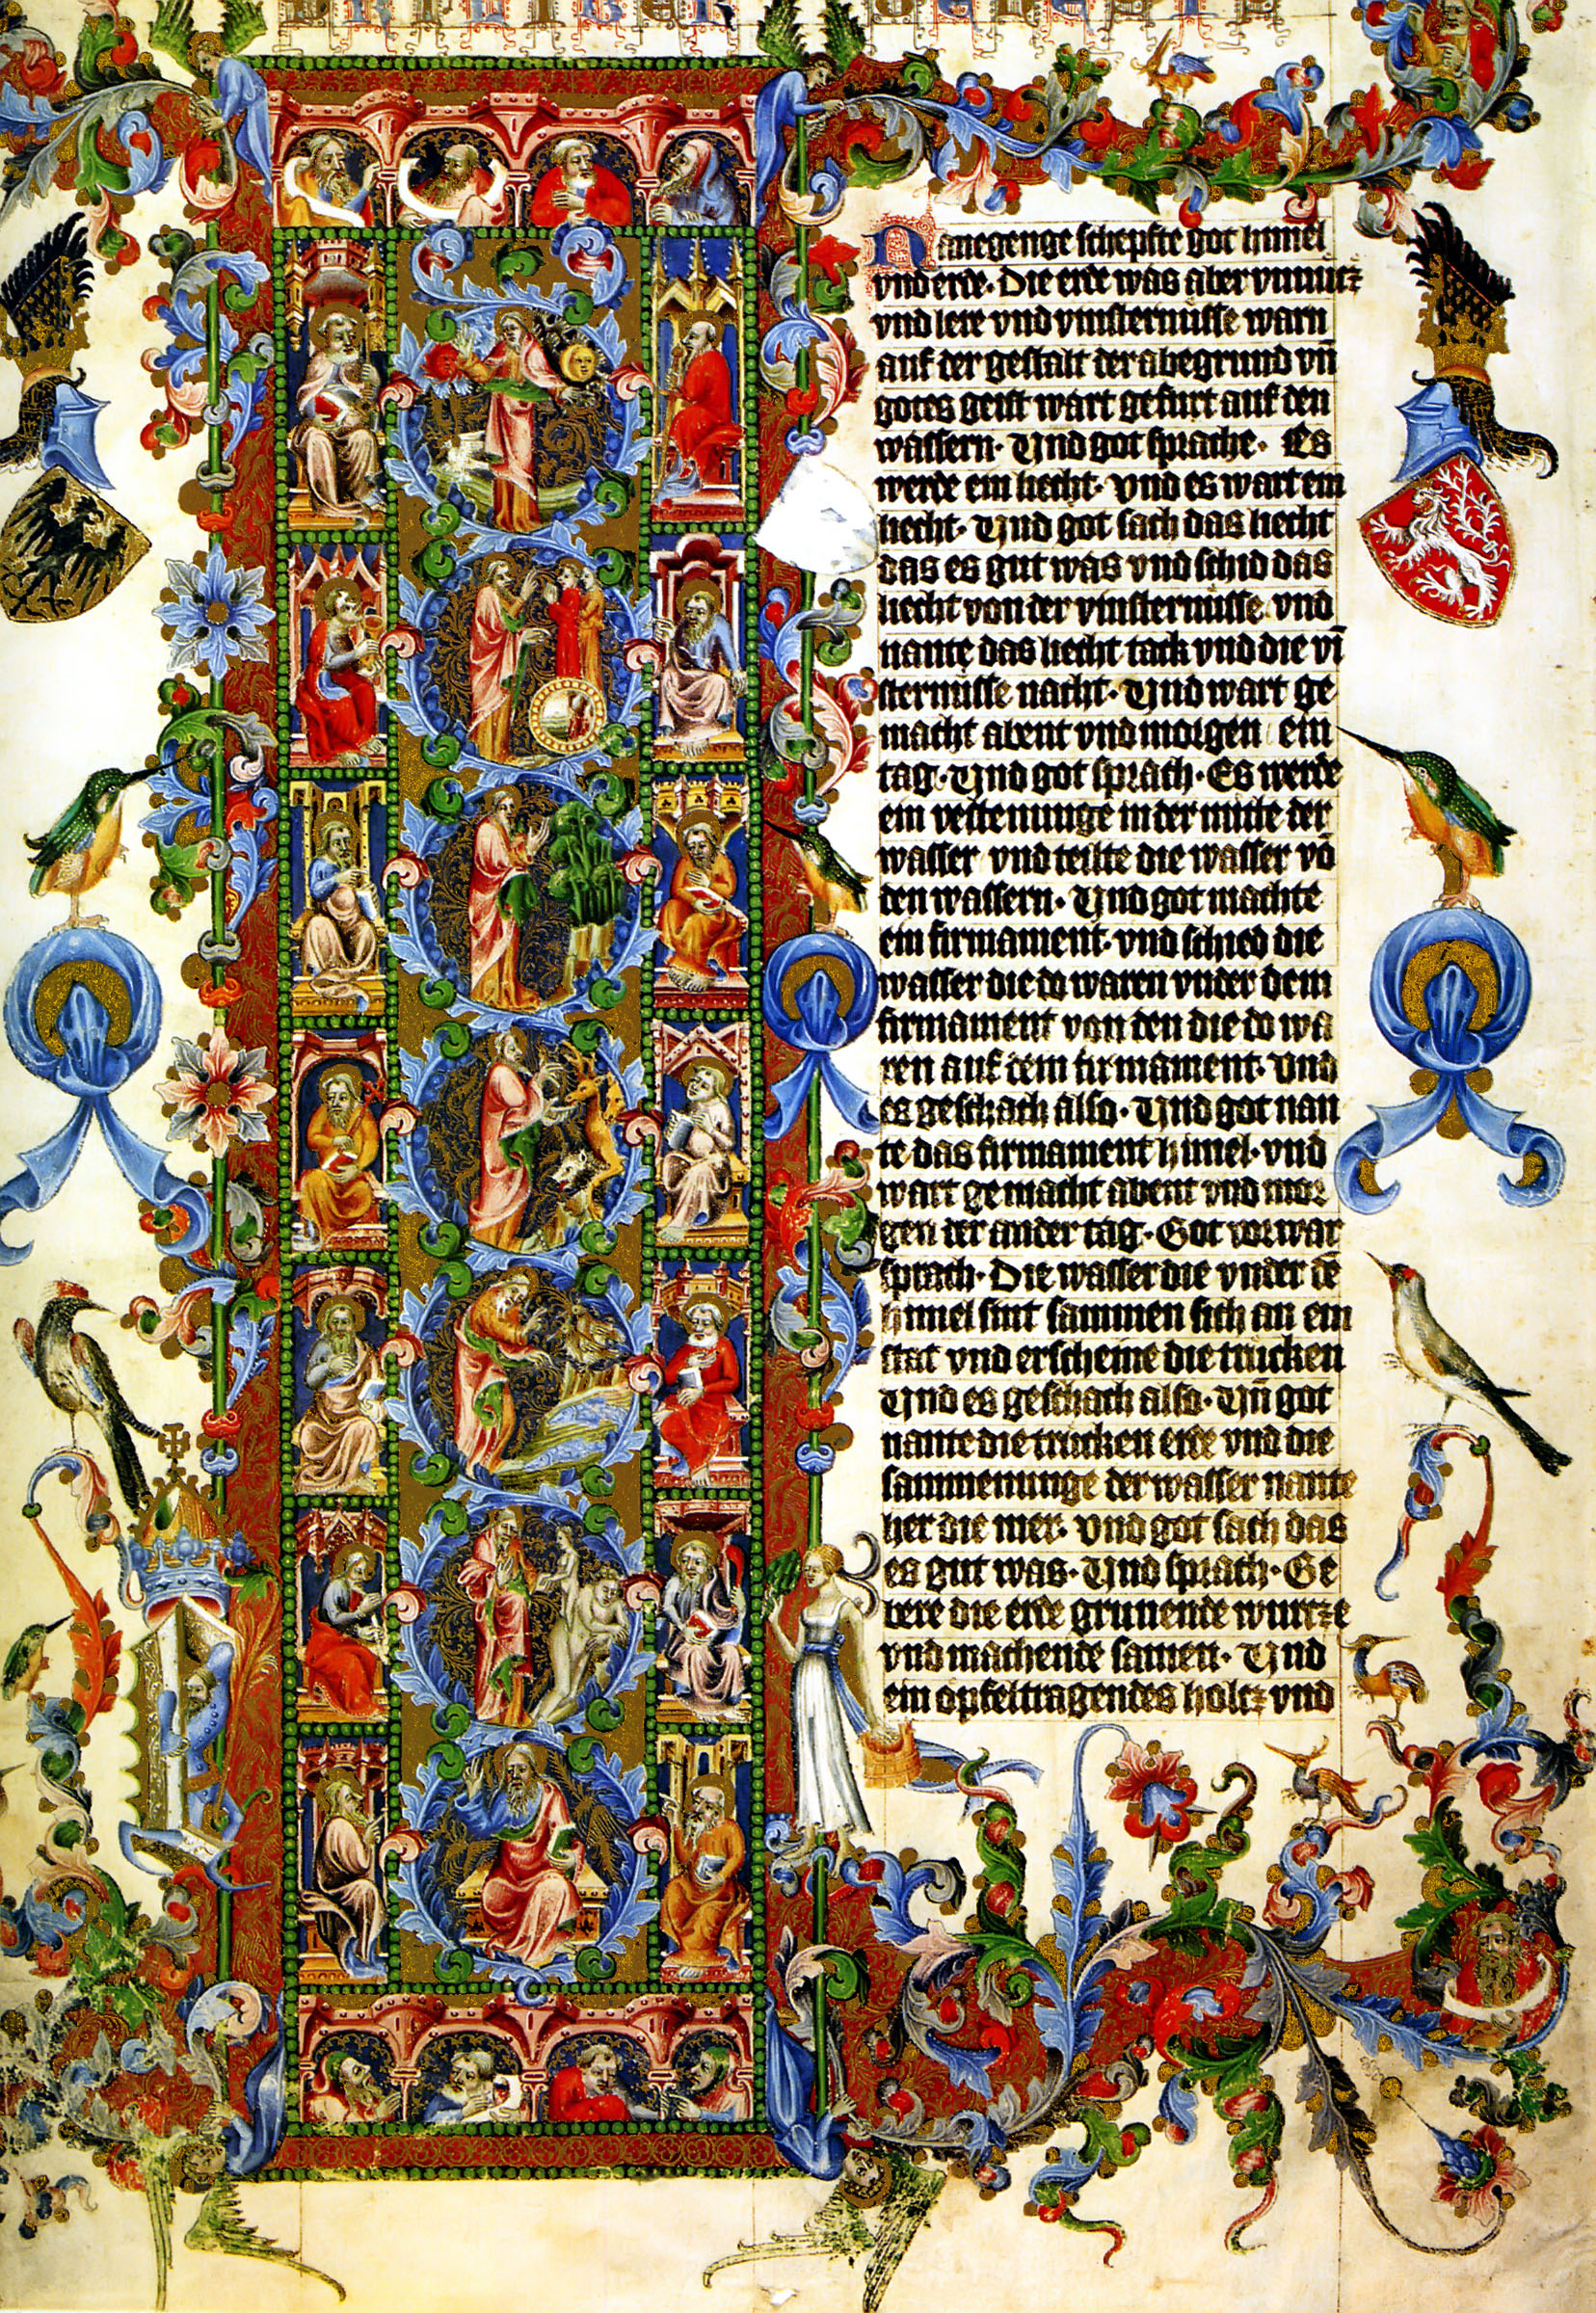 N anegenge schepfte got himel
vnd erde. Die erde was aber vnnutz
vnd lere vnd vinsternusse warn
auf der gestalt der abegrund vñ
gotes geist wart gefurt auf den
wassern. Und got sprache. Es
werde ein liecht. vnd es wart ein
liecht. Und got sach das liecht
das es gut was vnd schid das
liecht von der vinsternusse. vnd
nante das liecht tack vnd die vī
sternusse nacht. Und wart ge
macht abent vnd morgen ein
tag. Und got sprach. Es werde
ein vestenunge in der mitte der
wasser vnd teilte die wasser vō
den wassern. Und got machte
ein firmament. vnd schied die
wasser die do waren vnder dem
firmament von den die do wa
ren auf dem firmament. vnd
es geschach also. Und got nan
te das firmament himel. vnd
wart gemacht abent vnd mor
gen der ander tag. Got vorwar
sprach. Die wasser die vnder dē
himel sint sammen sich an ein
stat vnd erscheine die trucken
Und es geschach also. Uñ got
nante die trucken erde vnd die
sammenunge der wasser nante
her die mer. vnd got sach das
es gut was. Und sprach. Ge
bere die erde grunende wurtze
vnd machende samen. Und
ein opfeltragendes holtz vnd